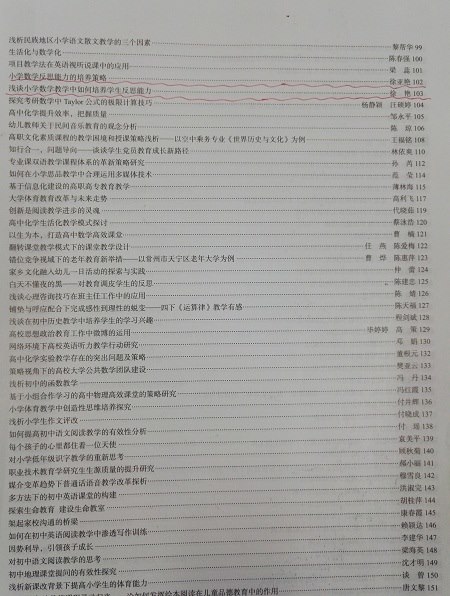 浅析民族地区小学语文散文教学的三个因素 黎蓓华 99
生活化与数学化 陈春强 100
项目教学法在英语视听说课中的应用 梁蕊 101
小学数学反思能力的培养策略 徐亚艳 102
浅谈小学数学教学中如何培养学生反思能力 徐艳 103
探究考研数学中 Taylor 公式的极限计算技巧 杨静颖 汪硕婷 104
高中化学提升效率、把握质量 邹永平 105
幼儿教师关于民间音乐教育的观念分析 陈琼 106
高职文化素质课程的教学困境和授课策略浅析——以空中乘务专业《世界历史与文化》为例 王福铭 108
知行合一,问题导向——谈谈学生党员教育成长新路径 林依爽 110
专业课双语教学课程体系的革新策略研究 孙芮 112
如何在小学思品教学中合理运用多媒体技术 范莹 114
基于信息化建设的高职高专教育教学 薄林海 115
大学体育教育改革与未来走势 高利飞 117
创新是阅读教学进步的灵魂 代晓茹 119
高中化学生活化教学模式探讨 蔡泳浩 120
以生为本,打造高中数学高效课堂 曹楠 121
翻转课堂教学模式下的课堂教学设计 任燕 陈爱梅 122
错位竞争视域下的老年教育新举措——以常州市天宁区老年大学为例 曹烨 陈惠萍 123
家乡文化融入幼儿一日活动的探索与实践 仲蕾 124
白天不懂夜的黑——对教育调皮学生的反思 陈建忠 125
浅谈心理咨询技巧在班主任工作中的应用 陈婧 126
铺垫与呼应配合下完成感性到理性的蜕变——四下《运算律》教学有感 陈天福 127
浅谈在初中历史教学中培养学生的学习兴趣 程剑斌 128
高校思想政治教育工作中微博的运用 毕婷婷 高策 129
网络环境下高校英语听力教学行动研究 邓娟 130
高中化学实验教学存在的突出问题及策略 董根元 132
策略视角下的高校大学公共数学团队建设 樊亚云 133
浅析初中的函数教学 冯丹 134
基于小组合作学习的高中物理高效课堂的策略研究 冯红霞 135
小学体育教学中创造性思维培养探究 付井辉 136
浅析小学生作文评改 付晓成 137
如何提高初中语文阅读教学的有效性分析 付瑶 138
每个孩子的心里都住着一位天使 袁美平 139
对小学低年级识字教学的重新思考 顾秋菊 140
职业技术教育学研究生生源质量的提升研究 郝小丽 141
媒介变革趋势下普通话语音教学改革探析 穆雪良 142
多方法下的初中英语课堂的构建 洪淑完 143
探索生命教育 建设生命教室 胡桂萍 144
架起家校沟通的桥梁 康春霞 145
如何在初中英语阅读教学中渗透写作训练 赖颖达 146
因势利导,引领孩子成长 李建华 147
对初中语文阅读教学的思考 梁海英 148
初中地理课堂提问的有效性探究 沈才明 149
浅析新课改背景下提高小学生的体育能力 谈曾 150
如何发挥绘本阅读在儿童品德教育中的作用 唐文黎 151